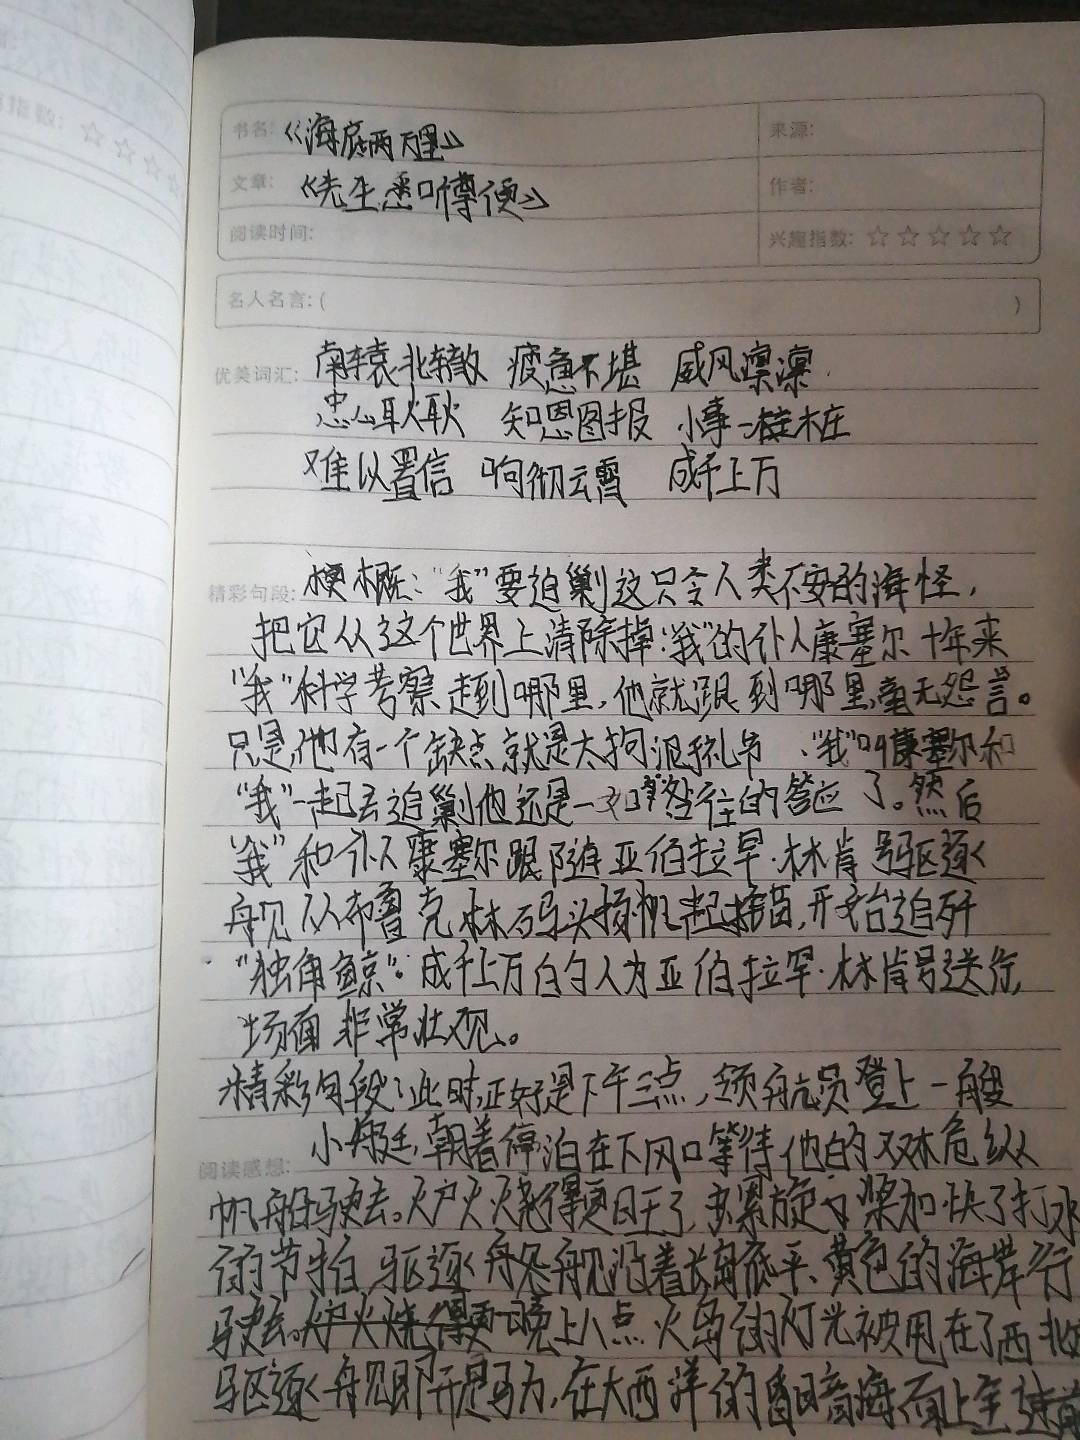 书名:《海底两万里》 来源:
文章:《先生悉叫博便》 作者:
阅读时间: 兴趣指数:☆☆☆☆☆
名人名言:( )
优美词汇: 南辕北辙 疲惫不堪 威风凛凛
忠心耿耿 知恩图报 小事一桩
难以置信 响彻云霄 成千上万
精彩句段: 梗概:"我"要追剿这只令人类不安的海怪,
把它从这个世界上清除掉:"我"的仆人康塞尔十年来
"我"科学考察走到哪里,他就跟到哪里,毫无怨言。
只是,他有一个缺点就是太拘泥礼节、"我"叫康塞尔和
"我"一起去追剿他还是一如既往的答应了。然后
"我"和仆人康塞尔跟随亚伯拉罕·林肯号驱逐
舰从布鲁克林码头扬帆起锚,开始追歼
"独角鲸"。成千上万的人为亚伯拉罕·林肯号送行,
场面非常壮观。
精彩句段:此时,正好是下午三点,领航员登上一艘
阅读感想: 小艇,朝着停泊在下风口等待他的双桅纵
帆船驶去。炉火烧得更旺了,螺旋桨加快了打水
的节拍,驱逐舰沿着长岛低平、黄色的海岸行
驶去。晚上八点,火岛的灯光被甩在了西北
驱逐舰即开足马力,在大西洋的昏暗海面上全速前